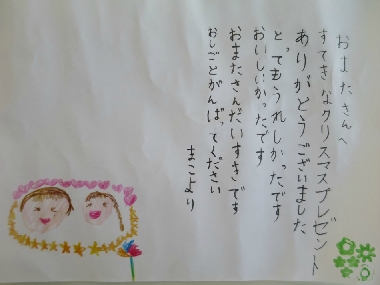 おまたさんへ
すてきなクリスマスプレゼント
ありがどうございました
とってもうれしかったです
おいしいかったです
おまたさんだいすきです
おしごとがんばってください
まこより